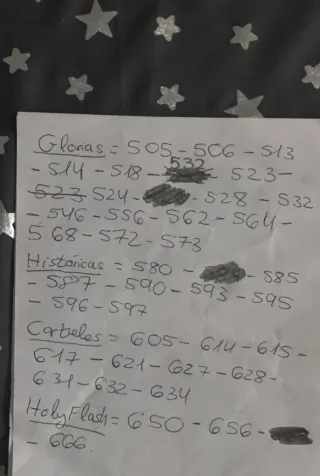 Glorias = 505 - 506 - 513
- 514 - 518 - 532 - 523 -
523 524 - - 528 - 532
- 546 - 556 - 562 - 564 -
568 - 572 - 573
Históricas = 580 - - 585
- 587 - 590 - 593 - 595
- 596 - 597
Carteles = 605 - 614 - 615 -
617 - 621 - 627 - 628 -
631 - 632 - 634
Holy Flash = 650 - 656 -
- 666.